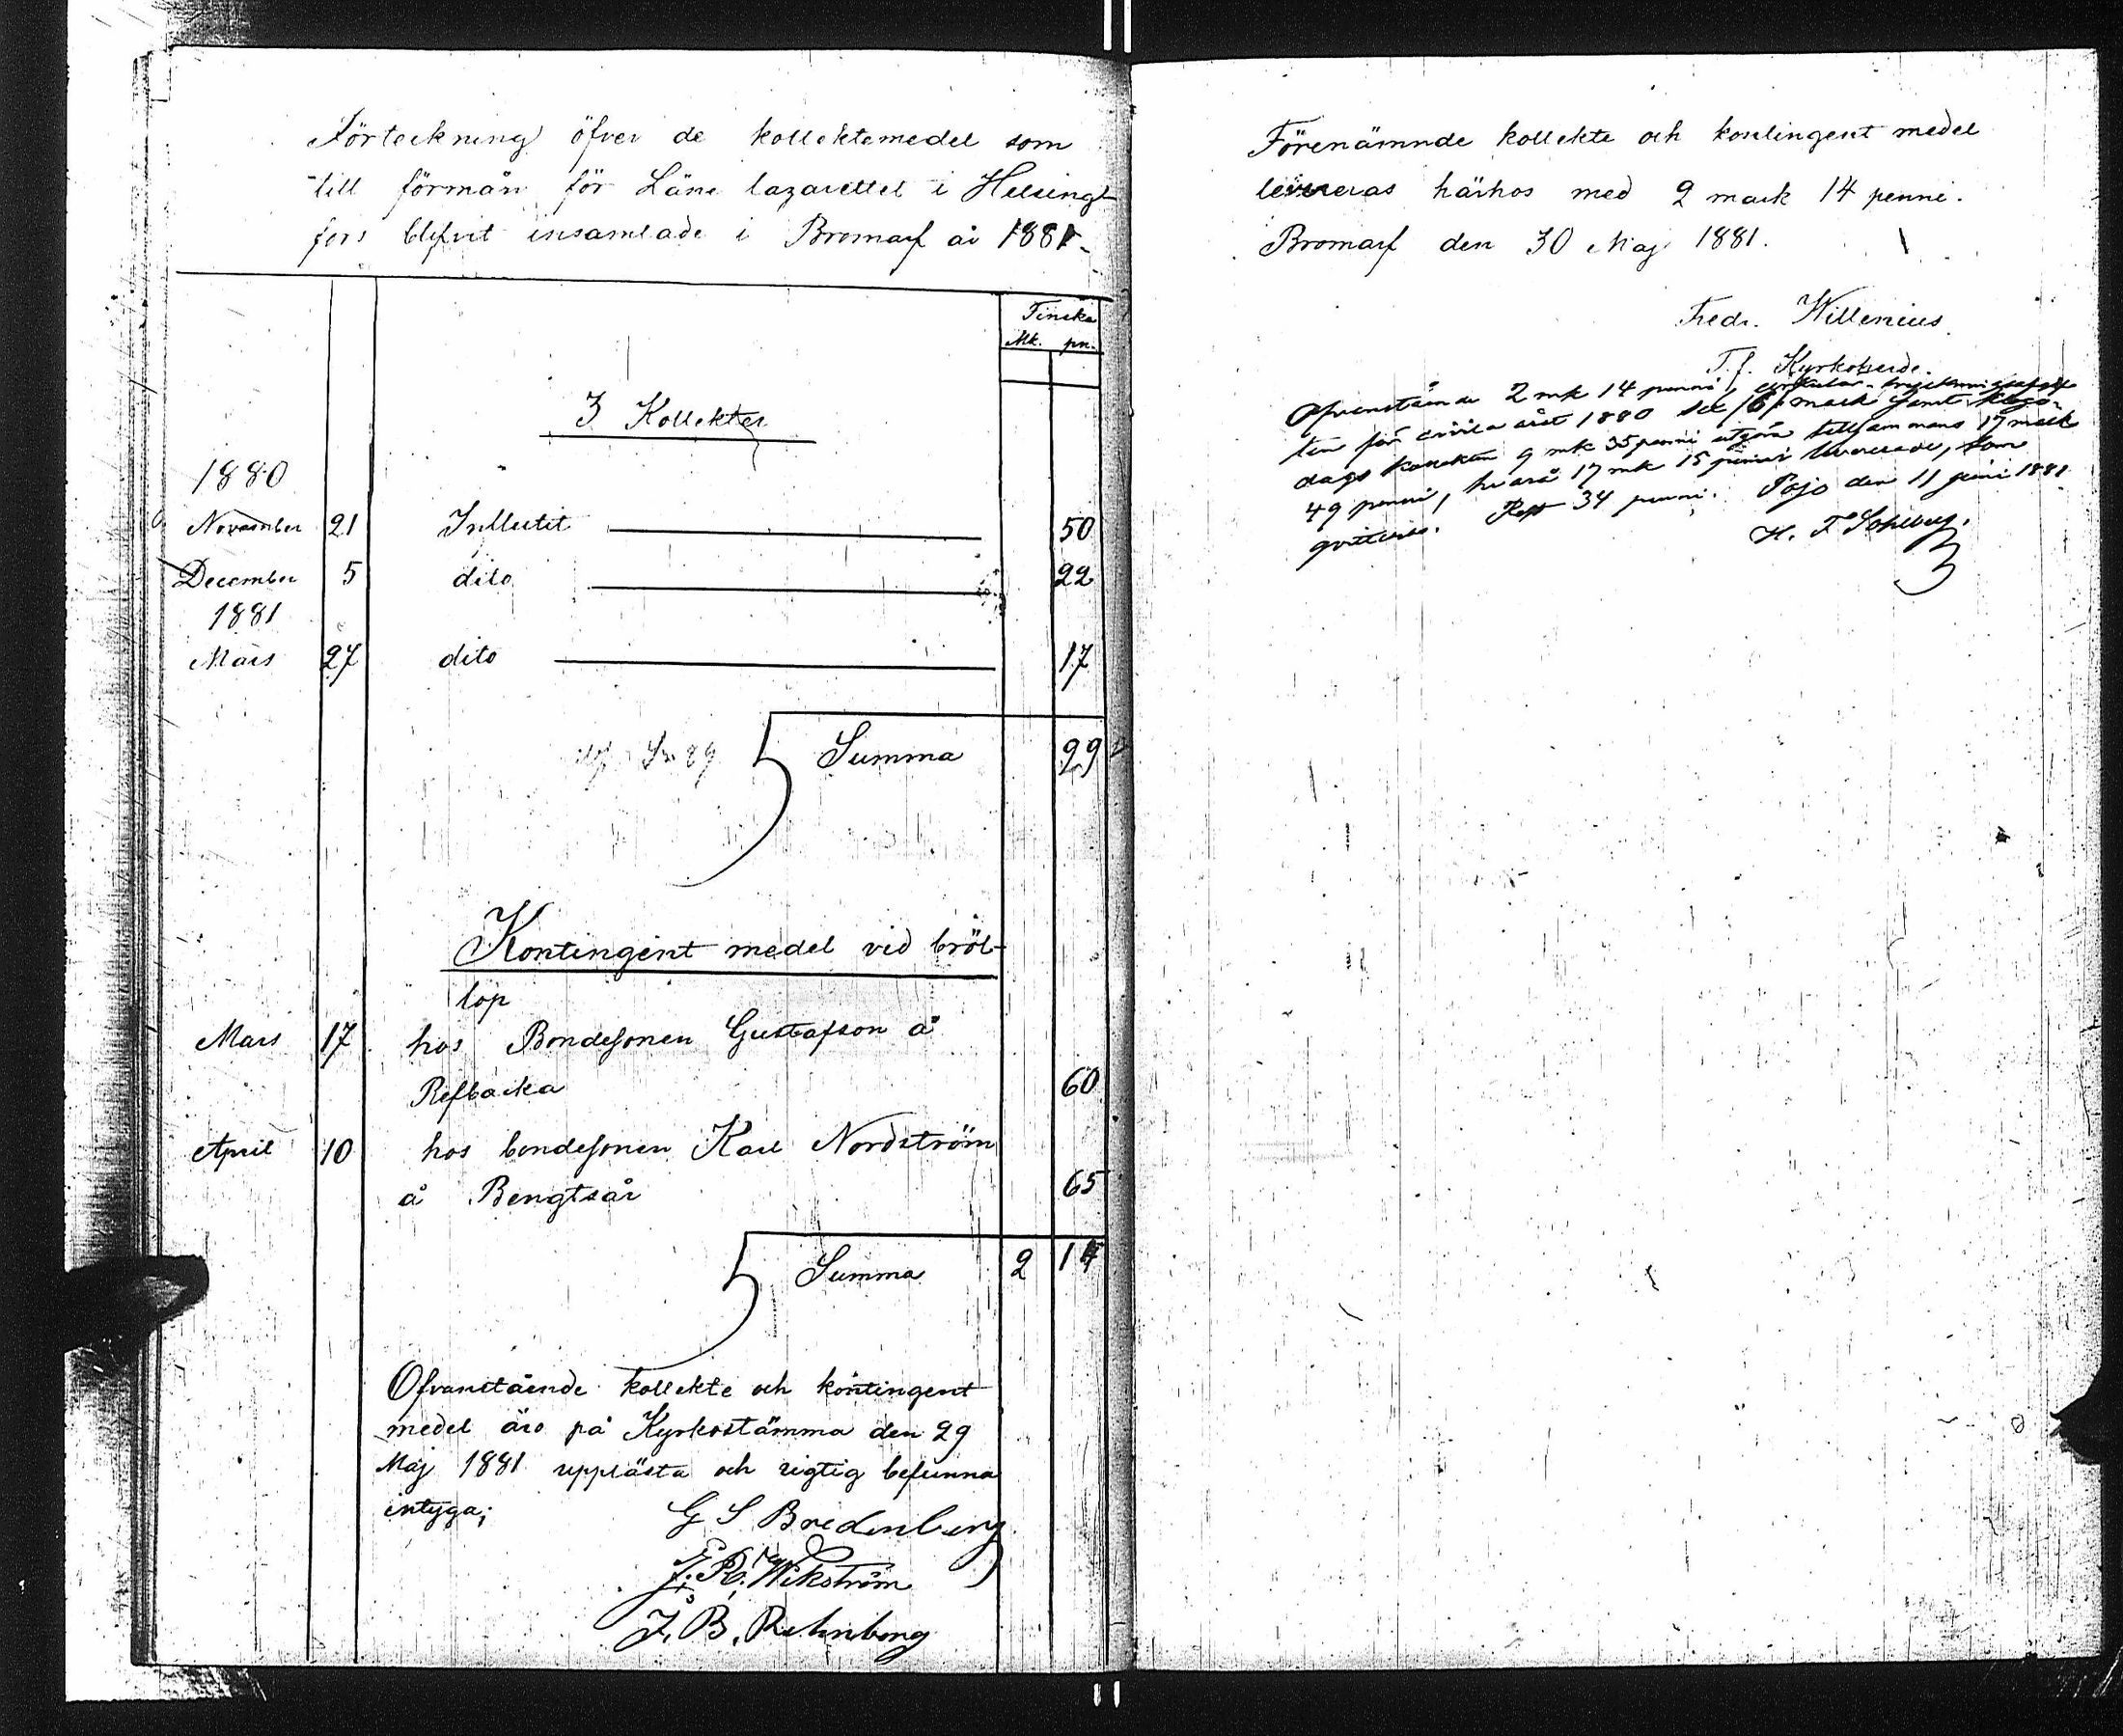 Förteckning öfver de kollektemedel som
till förmån för Läns lazarettet i Helsing-
fors blifvit insamlade i Bromarf år 1881.
Finska
Mk. pn.
3 Kollekter
1880
November 21 Influtit 50
December 5 dito 22
1881
Mars 27 dito 17
Summa 99
Kontingent medel vid bröl-
lop
Mars 17 hos Bondesonen Gustafson å
Refbacka 60
April 10 hos bondesonen Karl Nordström
å Bengtsår 65
Summa 2 14
Ofvanstående kollekte och kontingent
medel äro på Kyrkostämma den 29
Maj 1881 upplästa och rigtig befunna
intyga;
G S Bredenberg
J. R. Wikström
J. B. Rehnberg
Förenämnde kollekte och kontingent medel
levereras härhos med 2 mark 14 penni.
Bromarf den 30 Maj 1881.
Fredr. Willenius
T. f. Kyrkoherde.
Ofvanstående 2 mk 14 penni, cirkulär-
ten för civila året 1880 6 mark samt
dags kollekten 9 mk 35 penni utgöra tillsammans 17 mark
49 penni, hvarå 17 mk 15 penni levererade, som
qvitteras. Rest 34 penni. Pojo den 11 juni 1881.
H. F. Sohlberg.